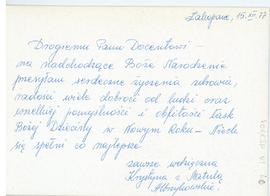 Zakopane, 15.XII.77
Drogiemu Panu Docentowi –
na nadchodzące Boże Narodzenie
przesyłam serdeczne życzenia zdrowia,
radości wiele dobroci od ludzi oraz
wszelkiej pomyślności i obfitości łask
Bożej Dzieciny w Nowym Roku – Niech
się spełni co najlepsze.
zawsze wdzięczna
Krystyna z Matulą